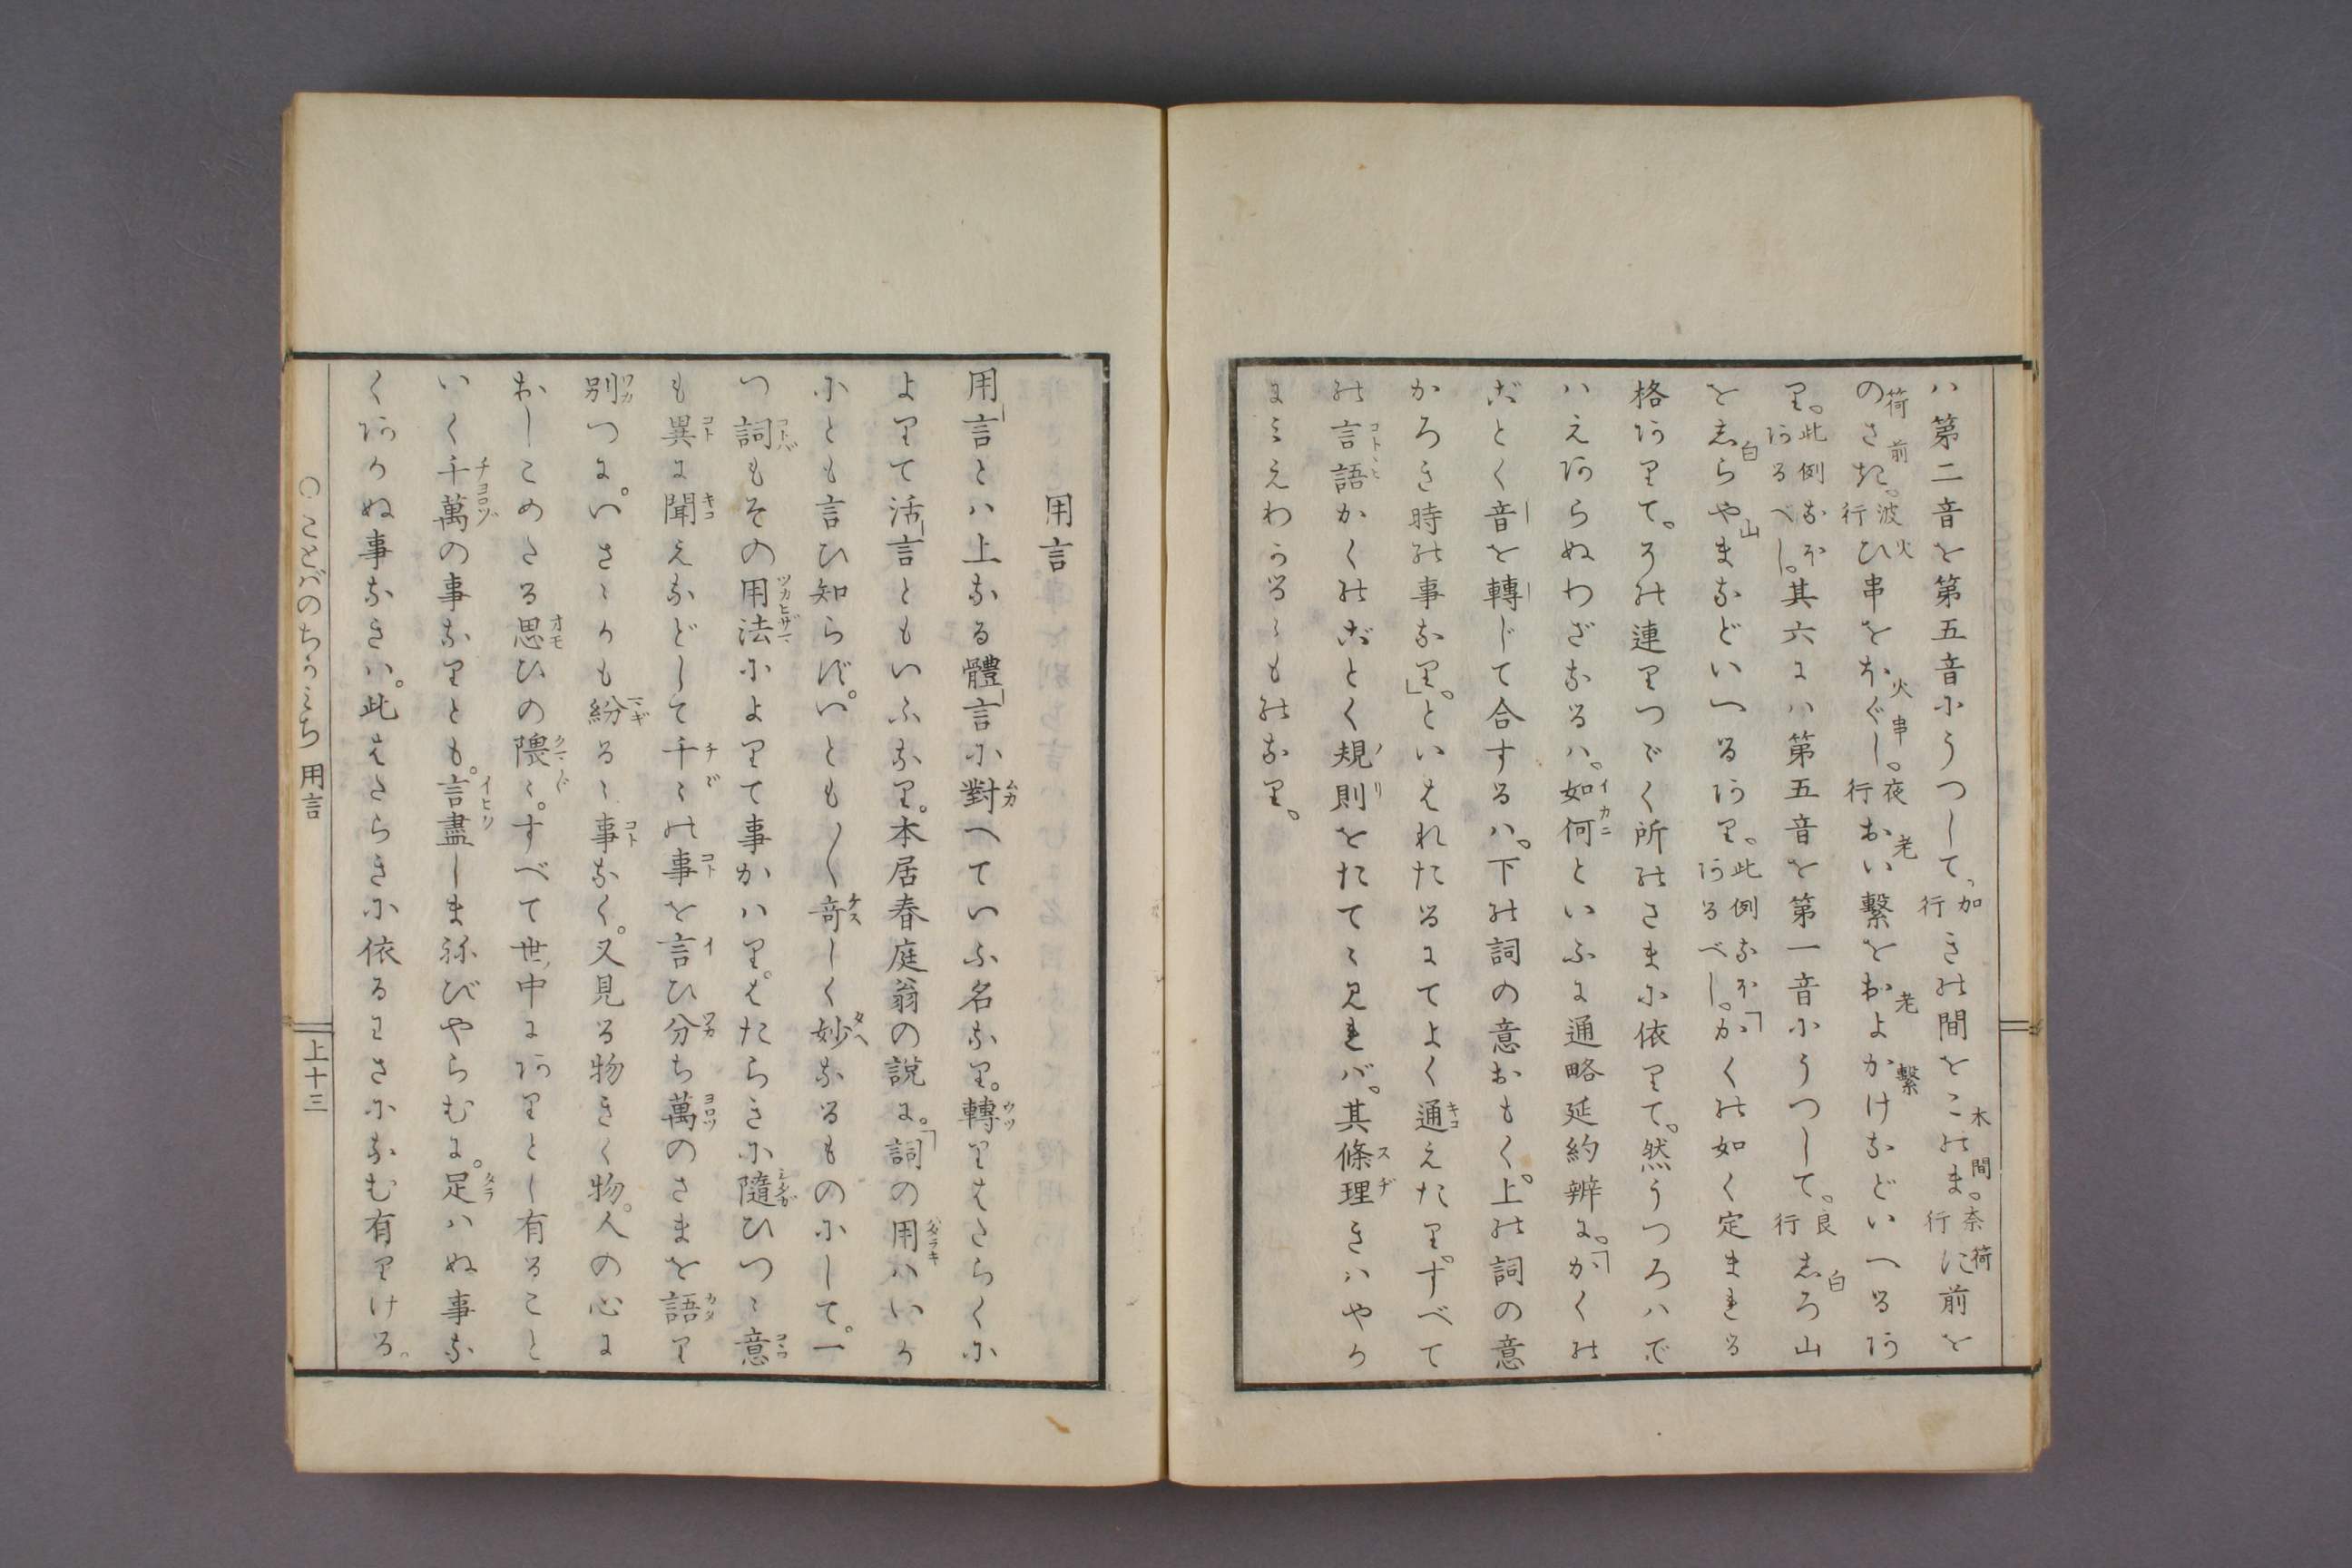 ハ第二音を第五音にうつして、加行きの間をこのま。奈行に前を
のさき。波行ひ串をほぐし。夜行おい繋をおよかけなどいへるあ
り。此例なほあるべし。其六にハ第五音を第一音にうつして。良行しろ山
をしらやまなどいへるあり。此例なほあるべし。「かくの如く定まれる
格ありて。その連りつゞく所のさまに依りて。然うつろハで
ハえあらぬわざなるハ。如何といふに通略延約辨に。「かくの
ごとく音を轉じて合するハ。下の詞の意おもく。上の詞の意
かろき時の事なり」。といはれたるにてよく通えたり。すべて
の言語かくのごとく規則をたてゝ見れバ。其條理きハやか
にみえわかるゝものなり。
用言
用言とハ上なる體言に對へていふ名なり。轉りはたらくに
よりて活言ともいふなり。本居春庭翁の説に。「詞の用ハいか
にとも言ひ知らず。いとも〳〵奇しく妙なるものにして。一
つ詞もその用法によりて事かハり。はたらきに隨ひつゝ意
も異に聞えなどして千〻の事を言ひ分ち萬のさまを語り
別つに。いさゝかも紛るゝ事なく。又見る物きく物。人の心に
おしこめたる思ひの隈〻。すべて世ノ中にありとし有ること
いく千萬の事なりとも。言盡しまねびやらむに。足ハぬ事な
くあかぬ事なきハ。此はたらきに依るわざになむ有りける。
○ことばのちかみち 用言
上十三